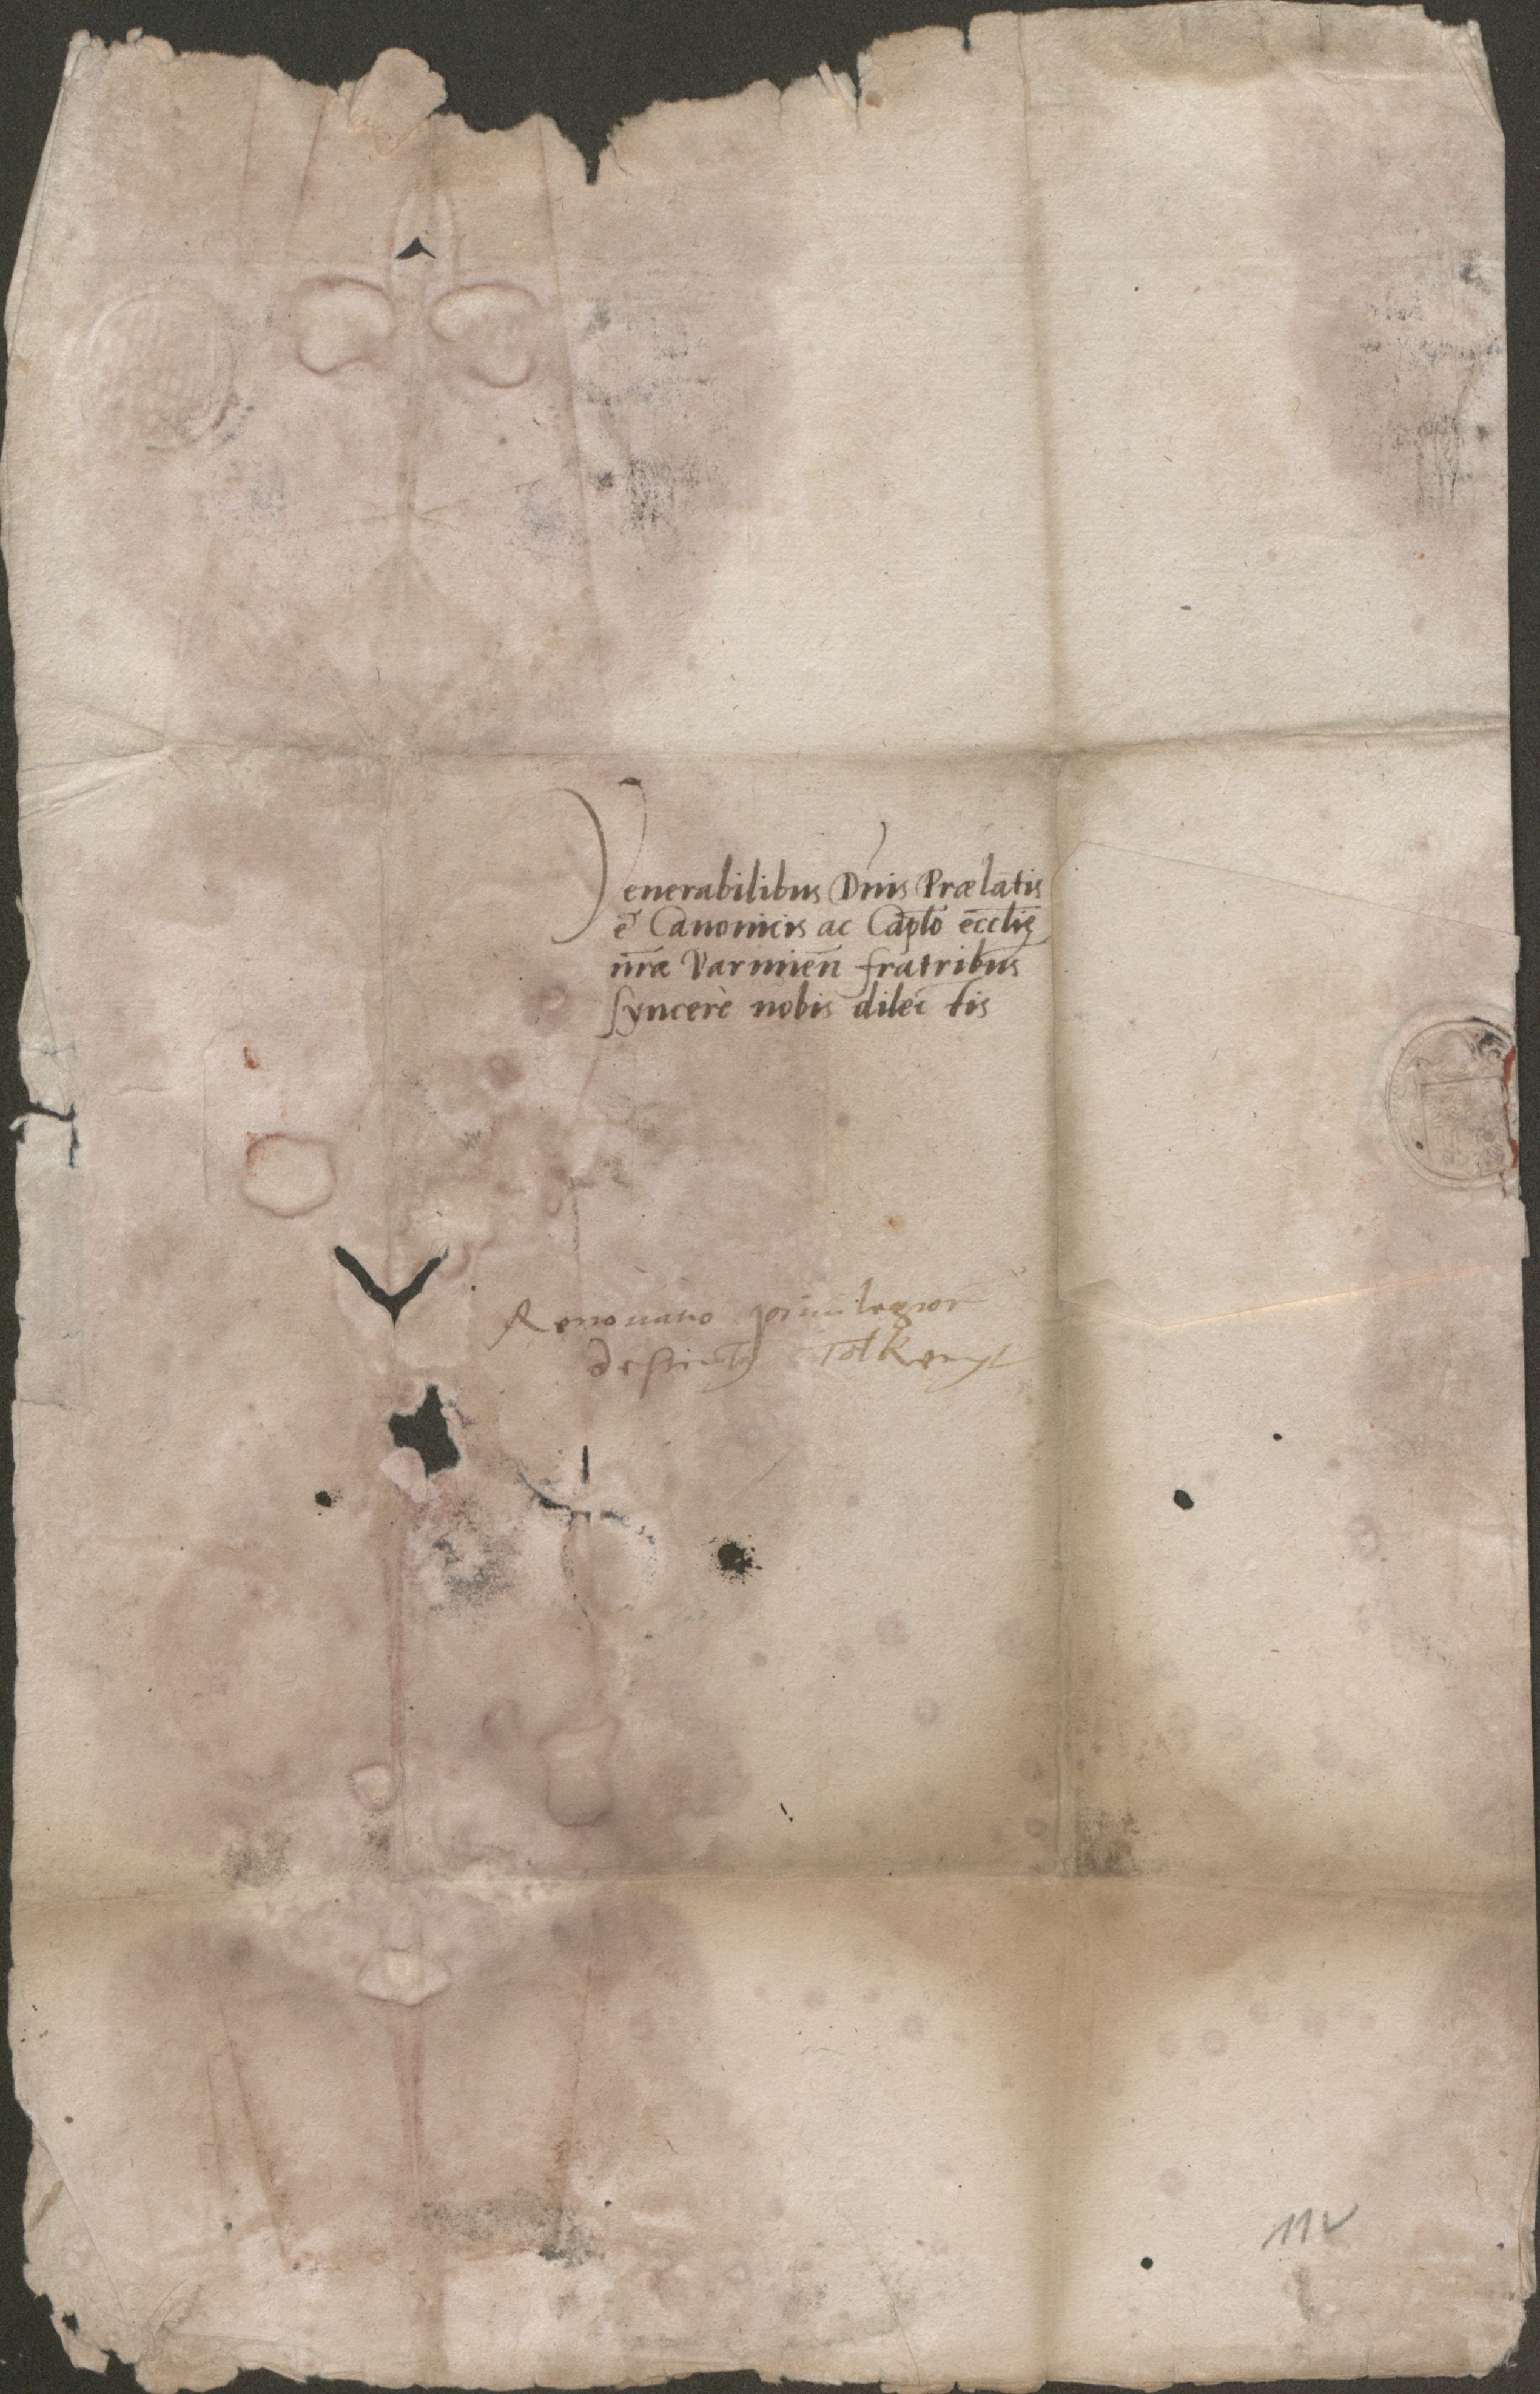 Venerabilibus Dnis Prælatis
et Canonicis ac Caplo ecclię
nræ Varmien̄ fratribus
syncerè nobis dilec tis
Renouatio priuilegior
Tolkemyt
11v